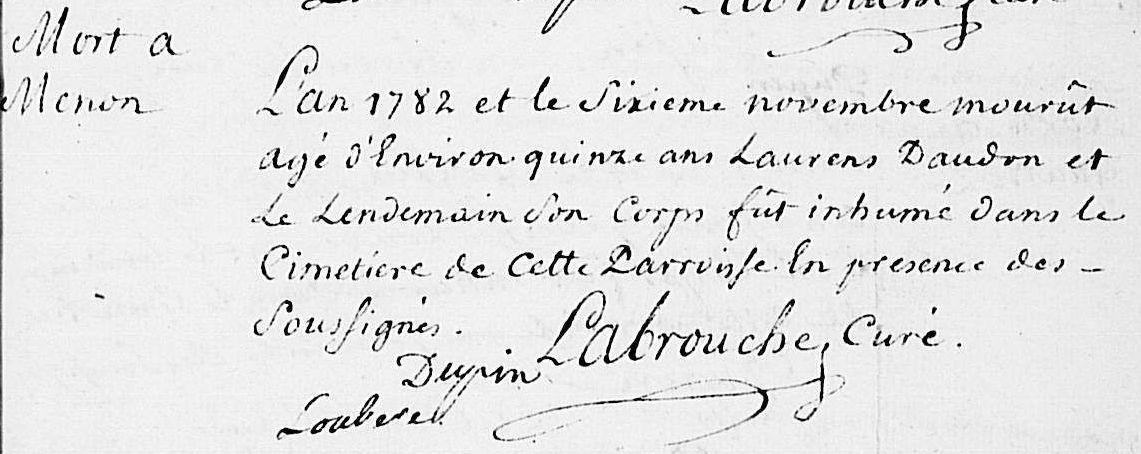 Mort a
Menon
L'an 1782 et le Sixieme novembre mourût
agé d'Environ quinze ans Laurens Daudon et
Le Lendemain Son Corps fût inhumé dans le
Cimetiere de Cette Parroisse En presence des
Soussignés.
Labrouche Curé.
Dupin
Loubere